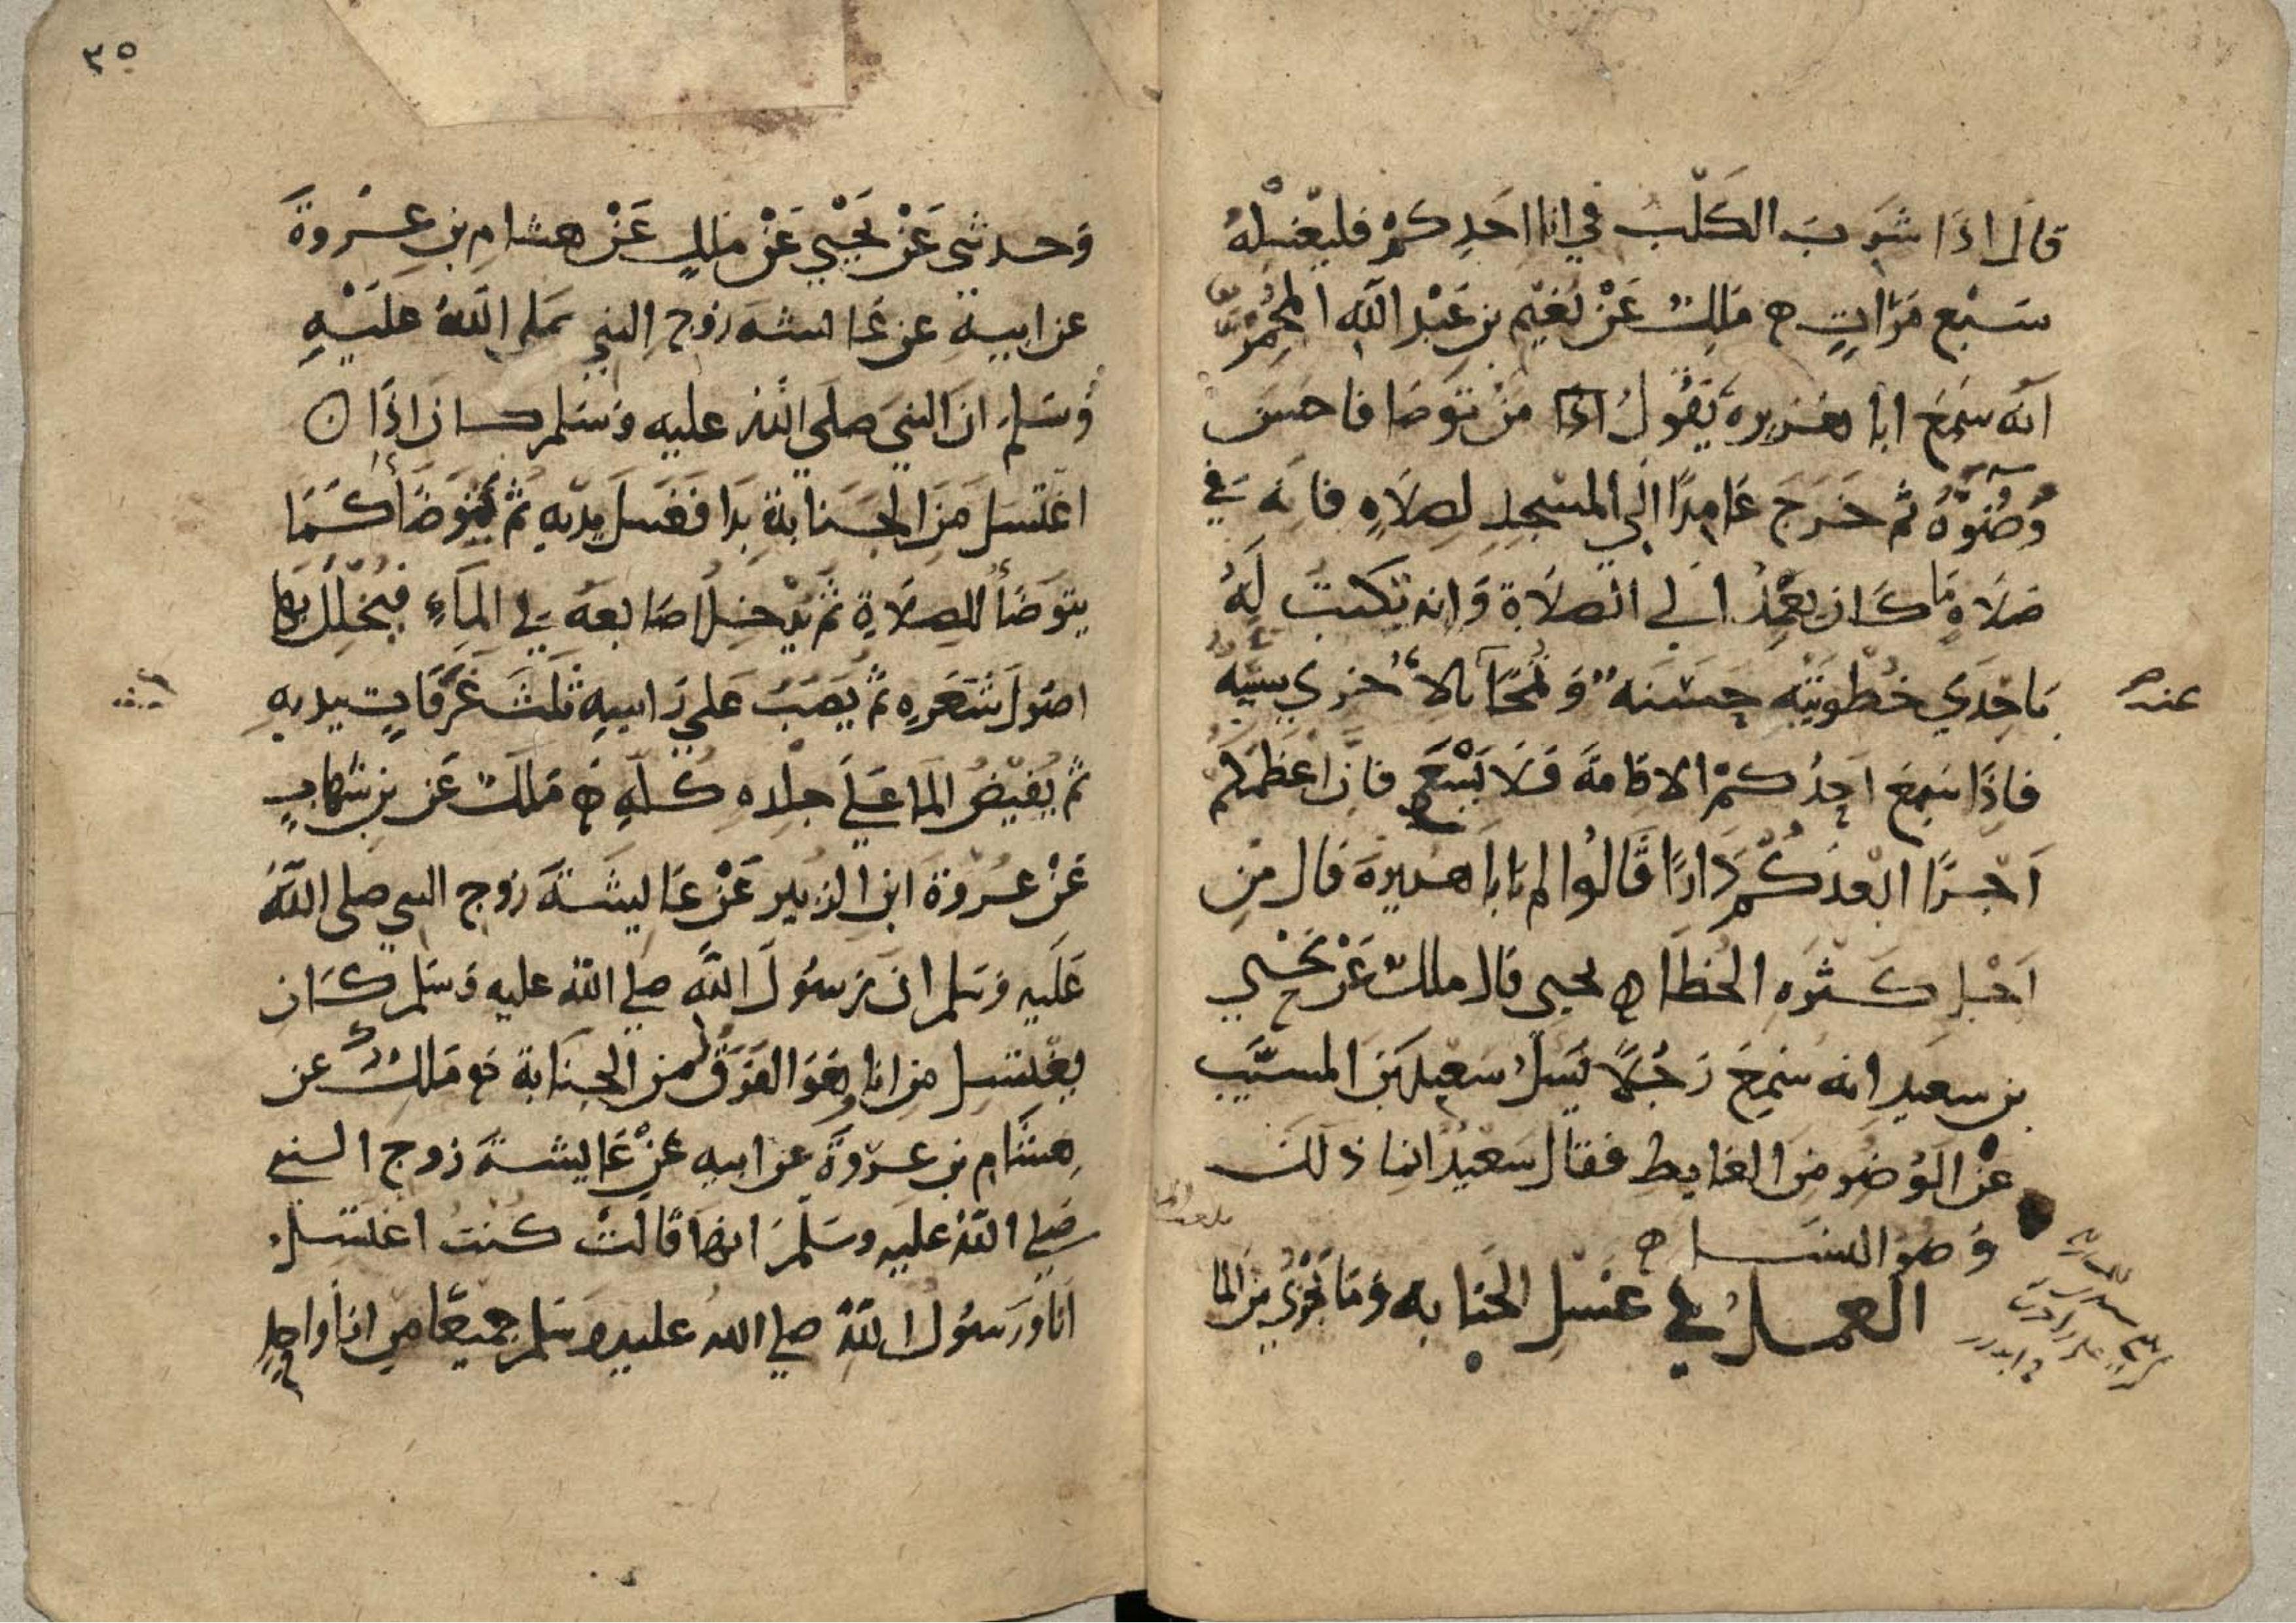 قال اذا شرب الكلب في انا احدكم فليغسله
سبع مرات ه ملك عن نعيم بن عبد الله المجمر
انه سمع ابا هريره يقول من توضا فاحسن
وضوه ثم خرج عامدا الي المسجد لصلاه فانه في
صلاه ما كان يعمد الي الصلاة وانه تكتب له
باحدي خطوتيه حسنه وتمحا بالاخري سييه
عنه
فاذا سمع احدكم الاقامة فلا يسع فان اعظمكم
اجرا ابعدكم دارا قالوا لم يابا هريرة قال من
اجل كثره الخطا ه يحيى قال ملك عن يحيي
بن سعيد انه سمع رجلا يسل سعيد بن المسيب
عن الوضو من الغايط فقال سعيد انما ذلك
وضو النسا ه
العمل في غسل الجنابه وما يجزي من الما
٣٥
وحدثني عن يحيي عن ملك عن هشام بن عروة
عن ابيه عن عائشه زوج النبي صلى الله عليه
وسلم ان النبي صلى الله عليه وسلم كان اذا
اغتسل من الجنابة بدا فغسل يديه ثم يتوضأ كما
يتوضأ للصلاة ثم يدخل اصابعه في الماء فيخلل بها
اصول شعره ثم يصب علي راسه ثلث غرفات بيديه
ثم يفيض الما على جلده كله ه ملك عن بن شهاب
عن عروة ابن الزبير عن عايشة زوج النبي صلى الله
عليه وسلم ان رسول الله صلي الله عليه وسلم كان
يغتسل من انا وهو الفرق من الجنابة ه وملك عن
هشام بن عروة عن ابيه عن عايشة زوج النبي
صلي الله عليه وسلم انها قالت كنت اغتسل
انا ورسول الله صلي الله عليه وسلم جميعا من انا واحد